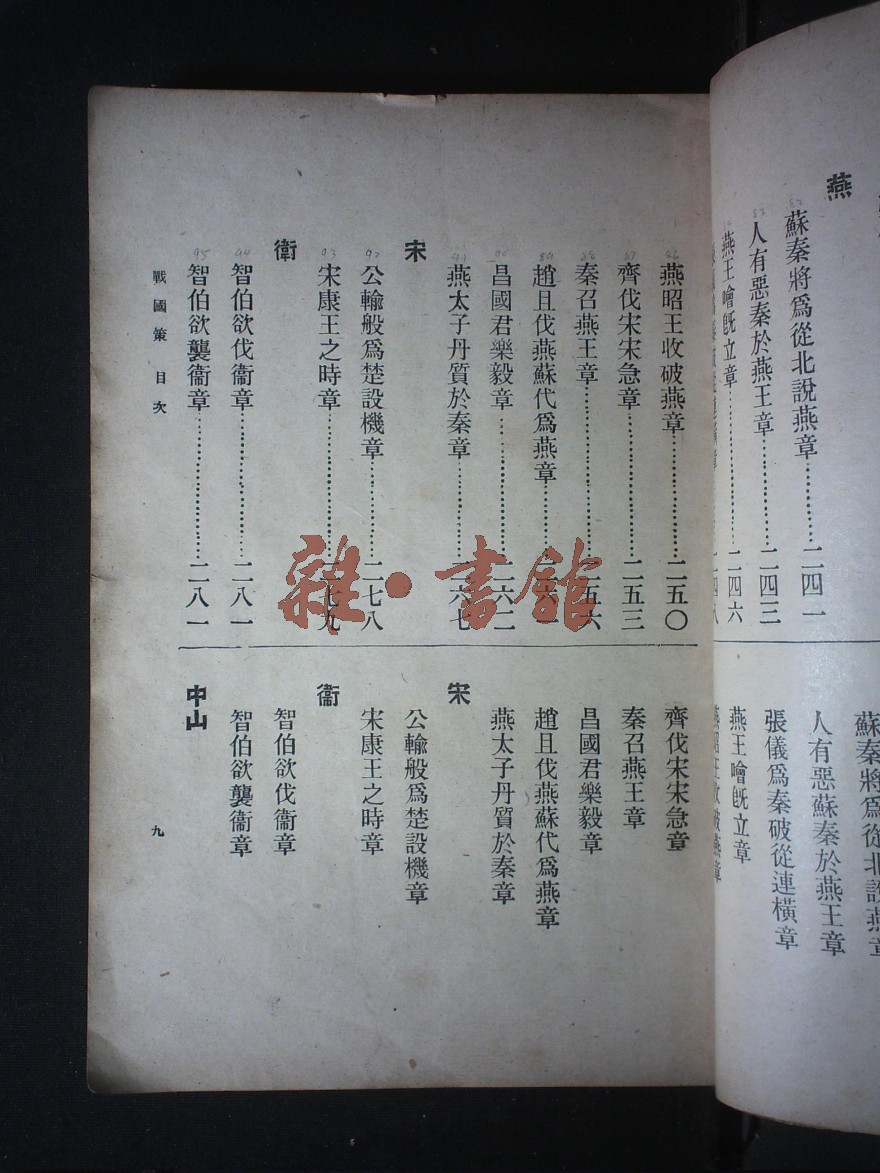 燕
蘇秦將爲從北說燕章…………二四一
人有惡秦於燕王章…………二四三
燕王噲旣立章…………二四六
蘇秦將爲從北說燕章
人有惡蘇秦於燕王章
張儀爲秦破從連橫章
燕王噲旣立章
燕昭王收破燕章
86 燕昭王收破燕章…………二五〇
87 齊伐宋宋急章…………二五三
88 秦召燕王章…………二五六
89 趙且伐燕蘇代爲燕章…………
90 昌國君樂毅章…………二六二
91 燕太子丹質於秦章…………二六七
宋
92 公輸般爲楚設機章…………二七八
93 宋康王之時章…………二七九
衞
94 智伯欲伐衞章…………二八一
95 智伯欲襲衞章…………二八一
齊伐宋宋急章
秦召燕王章
昌國君樂毅章
趙且伐燕蘇代爲燕章
燕太子丹質於秦章
宋
公輸般爲楚設機章
宋康王之時章
衞
智伯欲伐衞章
智伯欲襲衞章
中山
戰國策 目次
九
雜·書館